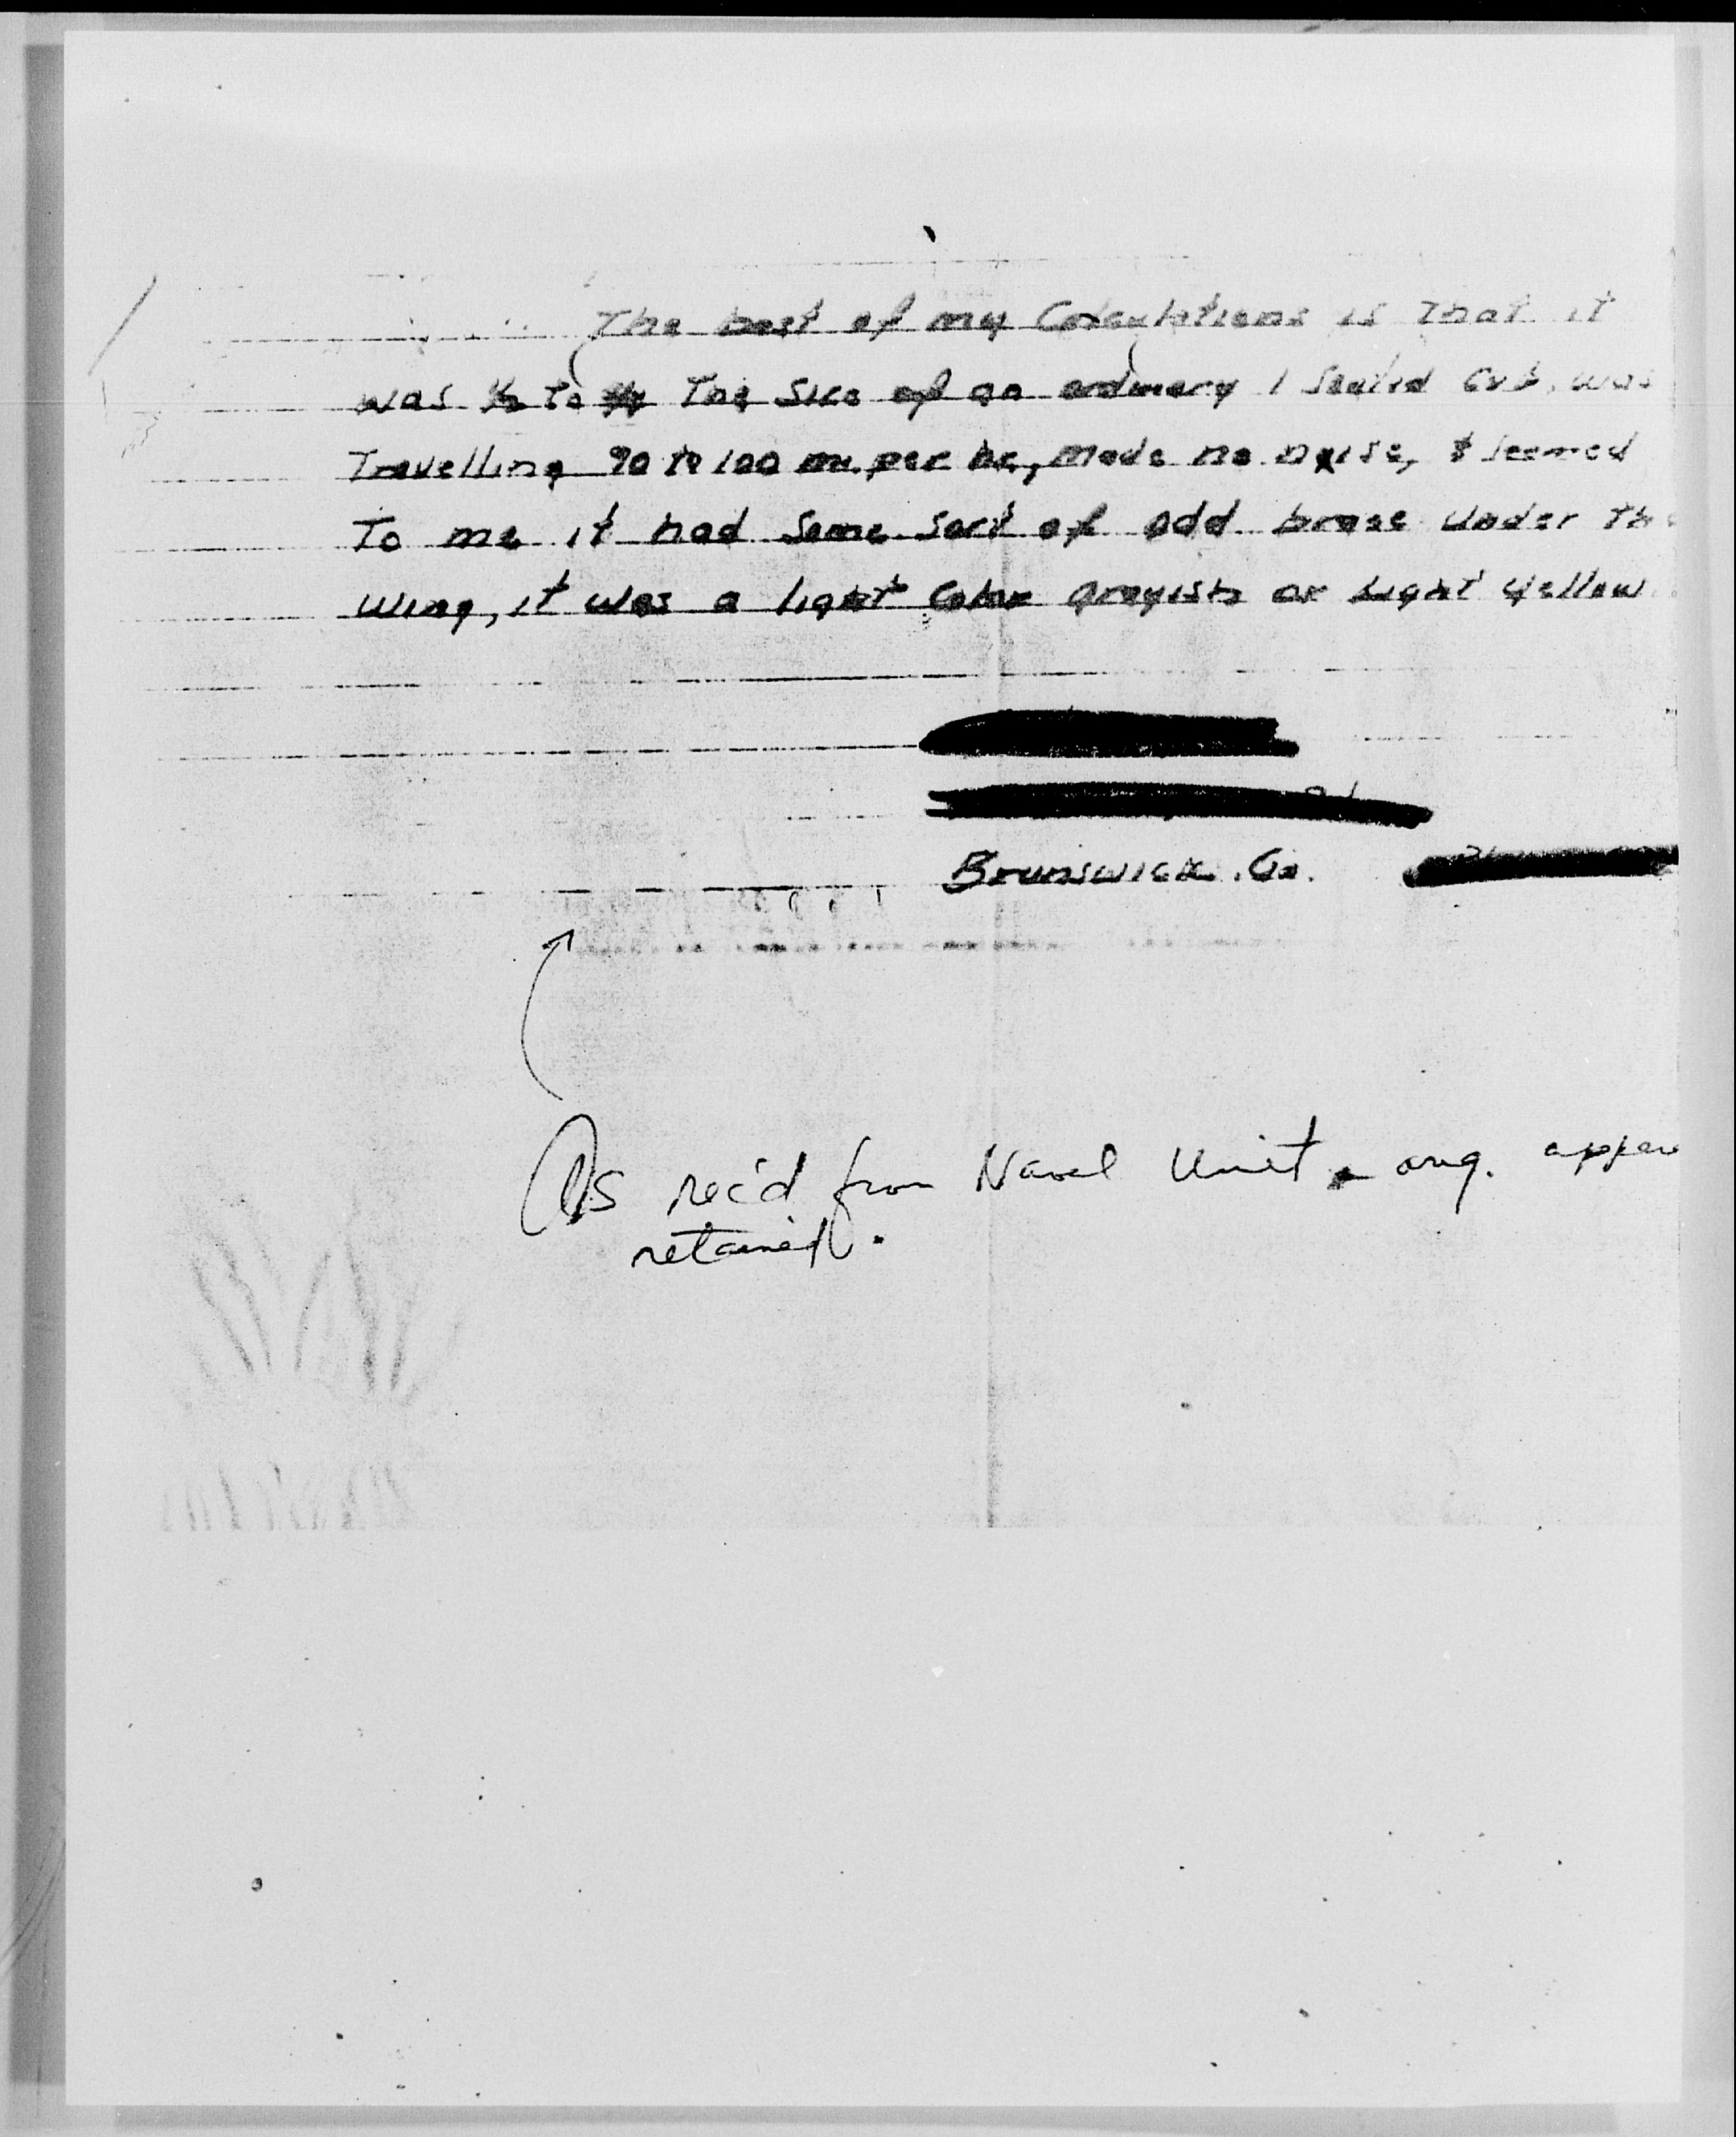 The best of my Calculations is That it
was 1/2 to 3/4 The Size of an ordinary 1 Seated Cub, was
Travelling 90 to 100 mi. per hr, made no noise, & seemed
To me it had Some Sort of odd brace Under The
Wing, it was a light Color grayish or Light Yellow
Brunswick. Ga.
As rec'd from Naval Unit - orig.
retained.